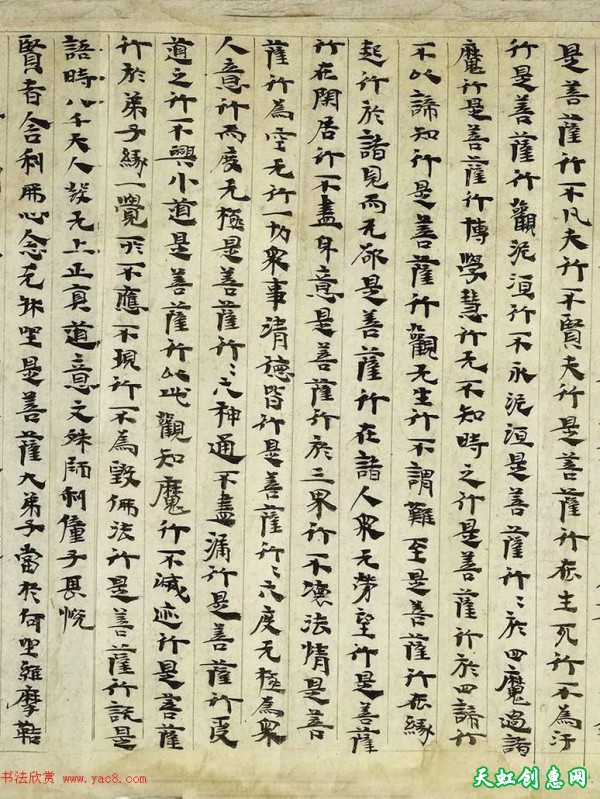 是菩薩行不凡夫行不賢夫行是菩薩行在生死行不為汙
行是菩薩行觀泥洹行不永泥洹是菩薩行〻於四魔過諸
魔行是菩薩行博學慧行无不知時之行是菩薩行於四諦行
不以諦知行是菩薩行觀无生行不謂難至是菩薩行在緣
起行於諸見而无欲是菩薩行在諸人衆无勞望行是菩薩
行在閑居行不盡身意是菩薩行於三界行不壞法情是菩
薩行為空无行一切衆事清德皆行是菩薩行〻六度无極為衆
人意行而度无極是菩薩行〻六神通不盡漏行是菩薩行受
道之行不興小道是菩薩行以此觀知魔行不滅迹行是菩薩
行於弟子緣一覺所不應不現行不為毀佛法行是菩薩行說是
語時八千天人發无上正真道意文殊師利僮子甚悅
賢者舍利弗心念无牀坐是菩薩大弟子當於何坐維摩詰
书法欣赏 www.yac8.com
天虹创惠网